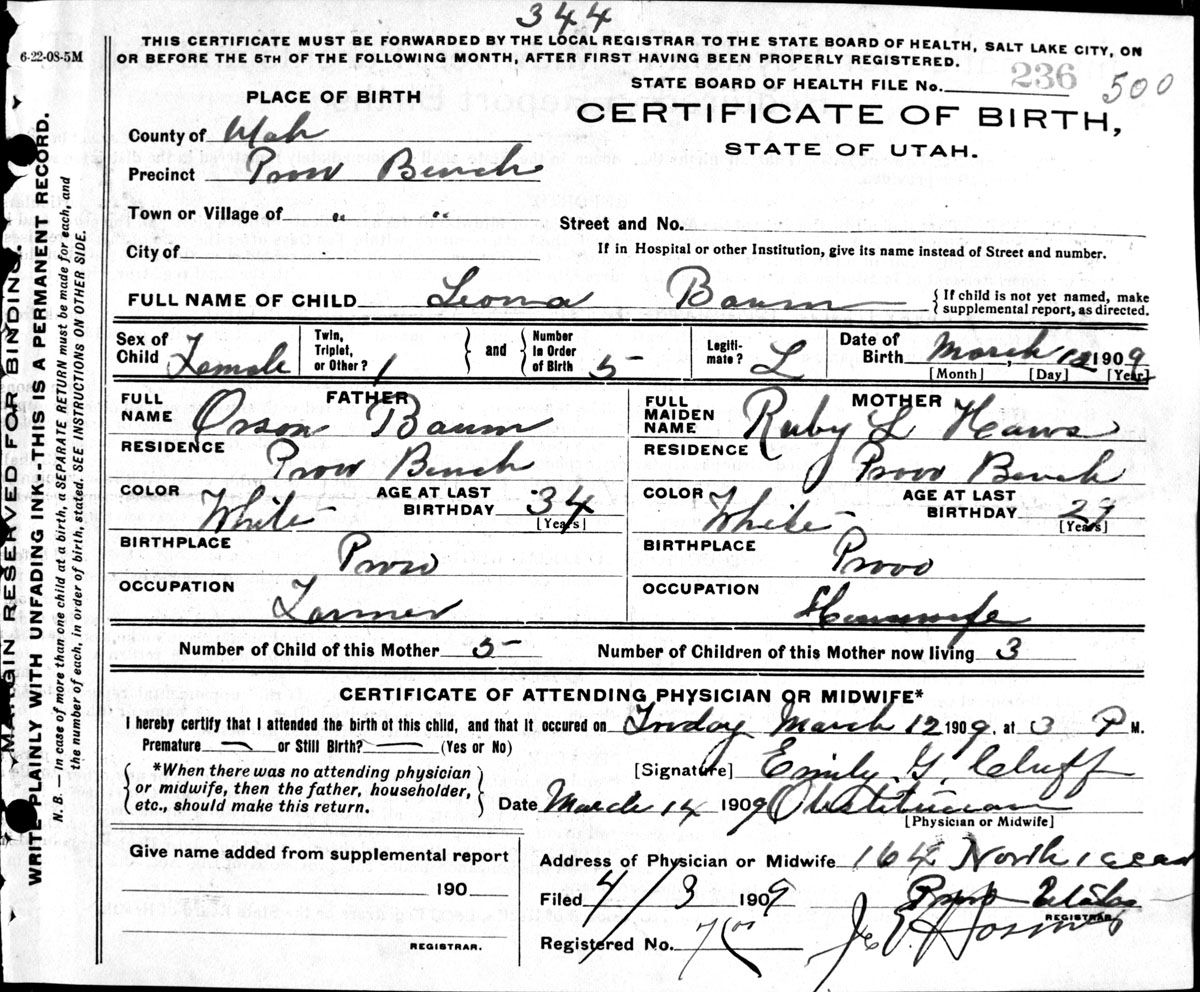 344
6-22-08-5M
THIS CERTIFICATE MUST BE FORWARDED BY THE LOCAL REGISTRAR TO THE STATE BOARD OF HEALTH, SALT LAKE CITY, ON
OR BEFORE THE 5TH OF THE FOLLOWING MONTH, AFTER FIRST HAVING BEEN PROPERLY REGISTERED.
STATE BOARD OF HEALTH FILE No. 236 500
PLACE OF BIRTH
CERTIFICATE OF BIRTH,
STATE OF UTAH.
County of Utah
Precinct Provo Bench
Town or Village of " "
Street and No.
City of
If in Hospital or other Institution, give its name instead of Street and number.
FULL NAME OF CHILD Leona Baum
{ If child is not yet named, make
supplemental report, as directed.
Sex of Child Female
Twin, Triplet, or Other? 1
and
Number in Order of Birth 5
Legiti-mate? L
Date of Birth March 12 1909
[Month] [Day] [Year]
FATHER
FULL NAME Orson Baum
RESIDENCE Provo Bench
COLOR White
AGE AT LAST BIRTHDAY 34
[Years]
BIRTHPLACE Provo
OCCUPATION Farmer
MOTHER
FULL MAIDEN NAME Ruby L Haws
RESIDENCE Provo Bench
COLOR White
AGE AT LAST BIRTHDAY 29
[Years]
BIRTHPLACE Provo
OCCUPATION Housewife
Number of Child of this Mother 5
Number of Children of this Mother now living 3
CERTIFICATE OF ATTENDING PHYSICIAN OR MIDWIFE*
I hereby certify that I attended the birth of this child, and that it occured on Friday March 12 1909, at 3 P M.
Premature — or Still Birth? — (Yes or No)
*When there was no attending physician
or midwife, then the father, householder,
etc., should make this return.
[Signature] Emily G. Cluff
Date March 14 1909 Obstetrician
[Physician or Midwife]
Give name added from supplemental report
190
REGISTRAR.
Address of Physician or Midwife 164 North
Provo Utah
Filed 4/3 1909
REGISTRAR.
Registered No.
MARGIN RESERVED FOR BINDING.
WRITE PLAINLY WITH UNFADING INK--THIS IS A PERMANENT RECORD.
N. B.—In case of more than one child at a birth, a SEPARATE RETURN must be made for each, and
the number of each, in order of birth, stated. SEE INSTRUCTIONS ON OTHER SIDE.